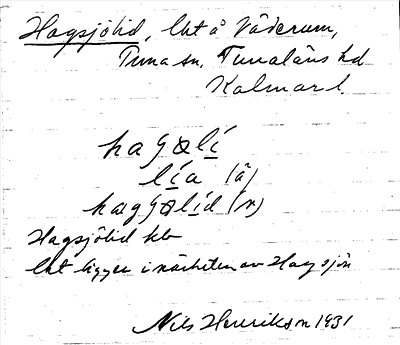 Hagsjölid, lht å Väderum,
Tuna sn, Tunaläns hd
Kalmar l.
hagɷlí
lía (å)
haggɷlíd (n)
Hagsjölid kb
lht ligger i närheten av Hagsjön
Nils Henrikson 1931